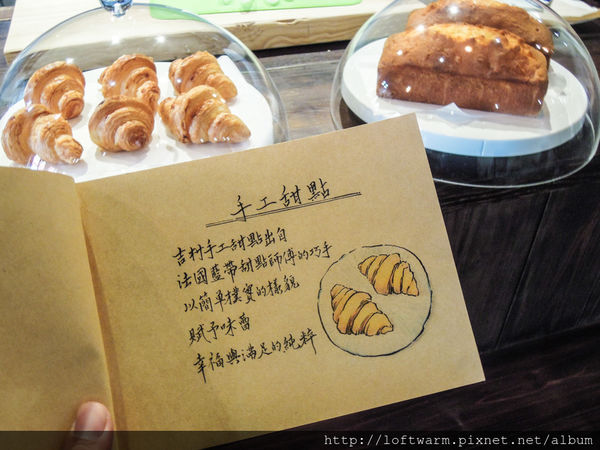 手工甜點
吉村手工甜點出自
法國藍帶甜點師傅的巧手
以簡單樸實的樣貌
賦予味蕾
幸福與滿足的純粹
http://loftwarm.pixnet.net/album